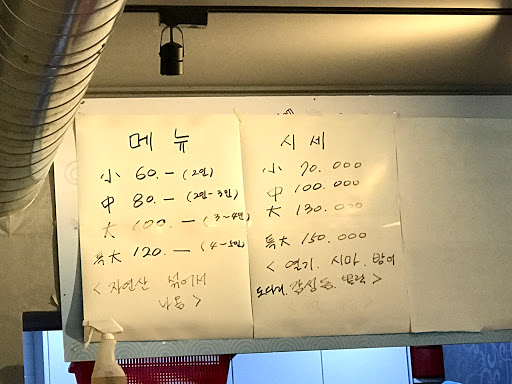 메 뉴
小 60.— (2인)
中 80.— (2인~3인)
大 100.— (3~4인)
특大 120.— (4~5인)
< 자연산 섞어서
나옴 >
시 세
小 70.000
中 100.000
大 130.000
특大 150.000
< 열기. 시마. 방어
도다리. 감성돔. 볼락 >